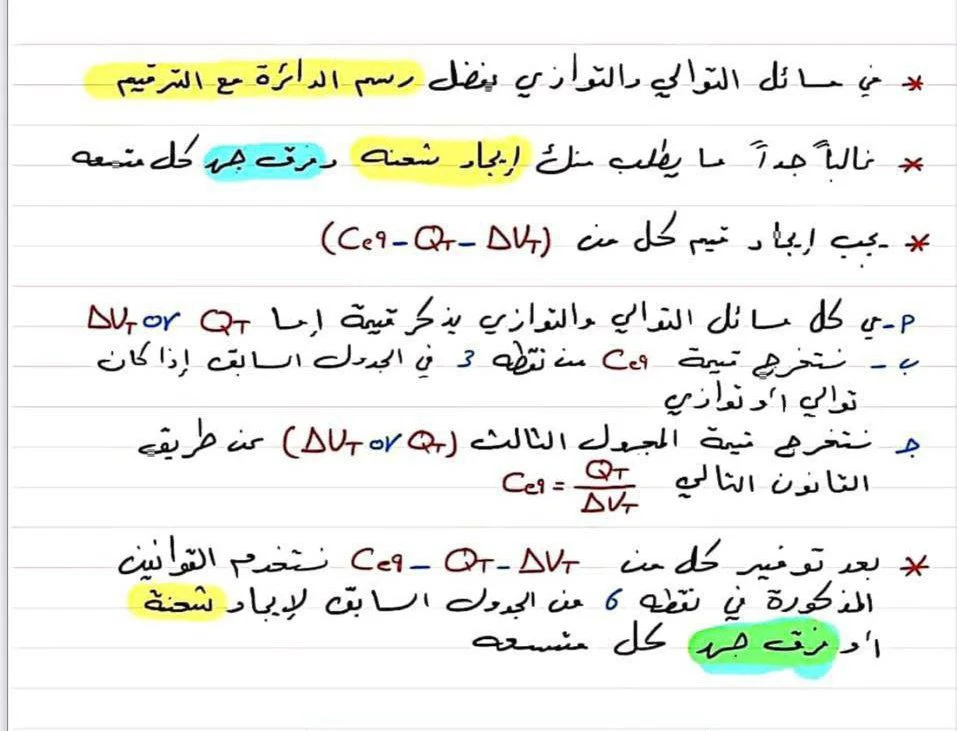 * في مسائل التوالي والتوازي يفضل رسم الدائرة مع الترقيم
* غالباً جداً ما يطلب منك إيجاد شحنة وفرق جهد كل متسعه
* يجب إيجاد قيم كل من (Ceq - QT - ΔVT)
أ- في كل مسائل التوالي والتوازي يذكر قيمة إما QT or ΔVT
ب - نستخرج قيمة Ceq من نقطه 3 في الجدول السابق إذا كان
توالي أو توازي
ج نستخرج قيمة المجهول الثالث (ΔVT or QT) عن طريق
القانون التالي Ceq = QT / ΔVT
* بعد توفير كل من Ceq - QT - ΔVT نستخدم القوانين
المذكورة في نقطه 6 من الجدول السابق لإيجاد شحنة
أو فرق جهد كل متسعه